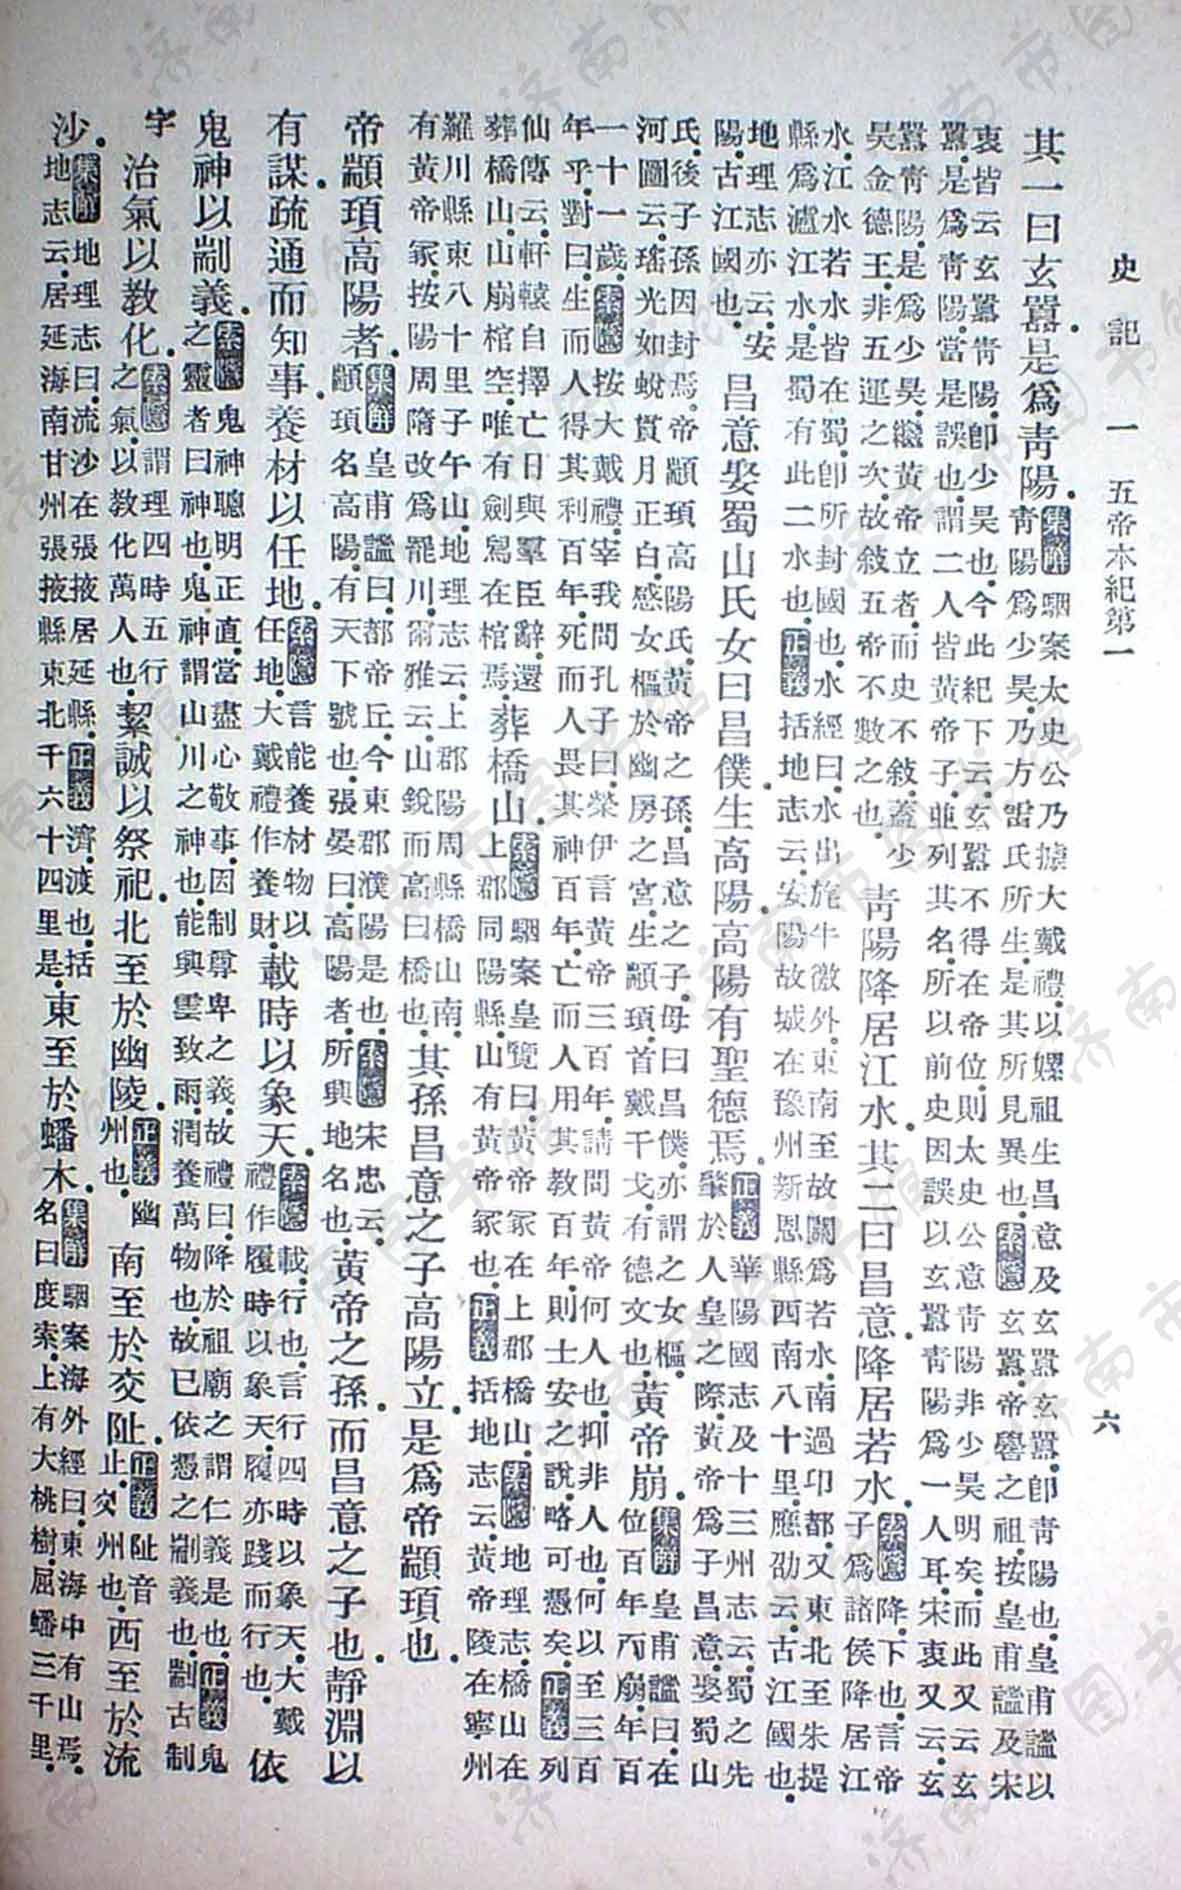 史記 一 五帝本紀第一 六
其一曰玄囂。是爲靑陽。集解駰案太史公乃據大戴禮。以嫘祖生昌意及玄囂。玄囂卽靑陽也。皇甫謐以靑陽爲少昊。乃方雷氏所生。是其所見異也。索隱玄囂。帝嚳之祖。按皇甫謐及宋
衷皆云玄囂靑陽。卽少昊也。今此紀下云。玄囂不得在帝位。則太史公意靑陽非少昊明矣。而此又云玄囂。是爲靑陽。當是誤也。謂二人皆黃帝子。並列其名。所以前史因誤以玄囂靑陽爲一人耳。宋衷又云。玄
囂靑陽。是爲少昊。繼黃帝立者。而史不敍。蓋少昊金德王。非五運之次。故敍五帝不數之也。靑陽降居江水。其二曰昌意。降居若水。索隱降。下也。言帝子爲諸侯。降居江
水。江水若水皆在蜀。卽所封國也。水經曰。水出旄牛徼外。東南至故關爲若水。南過卭都。又東北至朱提縣。爲瀘江水。是蜀有此二水也。正義括地志云。安陽故城在豫州新恩縣西南八十里。應劭云。古江國也。
地理志亦云。安陽。古江國也。昌意娶蜀山氏女曰昌僕。生高陽。高陽有聖德焉。正義華陽國志及十三州志云。蜀之先肇於人皇之際。黃帝爲子昌意。娶蜀山
氏。後子孫因封焉。帝顓頊高陽氏。黃帝之孫。昌意之子。母曰昌僕。亦謂之女樞。河圖云。瑤光如蛻貫月正白。感女樞於幽房之宮。生顓頊。首戴干戈。有德文也。黃帝崩。集解皇甫謐曰。在位百年而崩。年百
一十一歲。索隱按大戴禮。宰我問孔子曰。榮伊言黃帝三百年。請問黃帝何人也。抑非人也。何以至三百年乎。對曰。生而人得其利百年。死而人畏其神百年。亡而人用其教百年。則士安之說。略可憑矣。正義列
仙傳云。軒轅自擇亡日。與羣臣辭。還葬橋山。山崩棺空。唯有劍舃在棺焉。葬橋山。索隱駰案皇覽曰。黃帝冢在上郡橋山。索隱地理志。橋山在上郡同陽縣。山有黃帝冢也。正義括地志云。黃帝陵在寧州
羅川縣東八十里子午山。地理志云。上郡陽周縣橋山南。有黃帝冢。按陽周隋改爲羅川。爾雅云。山銳而高曰橋也。其孫昌意之子高陽立。是爲帝顓頊也。
帝顓頊高陽者。集解皇甫謐曰。都帝丘。今東郡濮陽是也。索隱宋忠云。顓頊名高陽。有天下號也。張晏曰。高陽者。所興地名也。黃帝之孫。而昌意之子也。靜淵以
有謀。疏通而知事。養材以任地。索隱言能養材物以任地。大戴禮作養財。載時以象天。索隱載。行也。言行四時以象天。大戴禮作履時以象天。履亦踐而行也。依
鬼神以制義。索隱鬼神聰明正直。當盡心敬事。因制尊卑之義。故禮曰。降於祖廟之謂仁義是也。正義鬼之靈者曰神也。鬼神謂山川之神也。能興雲致雨。潤養萬物也。故已依憑之制義也。制古制
字。治氣以教化。索隱謂理四時五行之氣。以教化萬人也。絜誠以祭祀。北至於幽陵。正義幽州也。南至於交阯。正義阯音止。交州也。西至於流
沙。集解地理志曰。流沙在張掖居延縣。正義濟。渡也。括地志云。居延海南。甘州張掖縣東北千六十四里是。東至於蟠木。集解駰案海外經曰。東海中有山焉。名曰度索。上有大桃樹。屈蟠三千里。